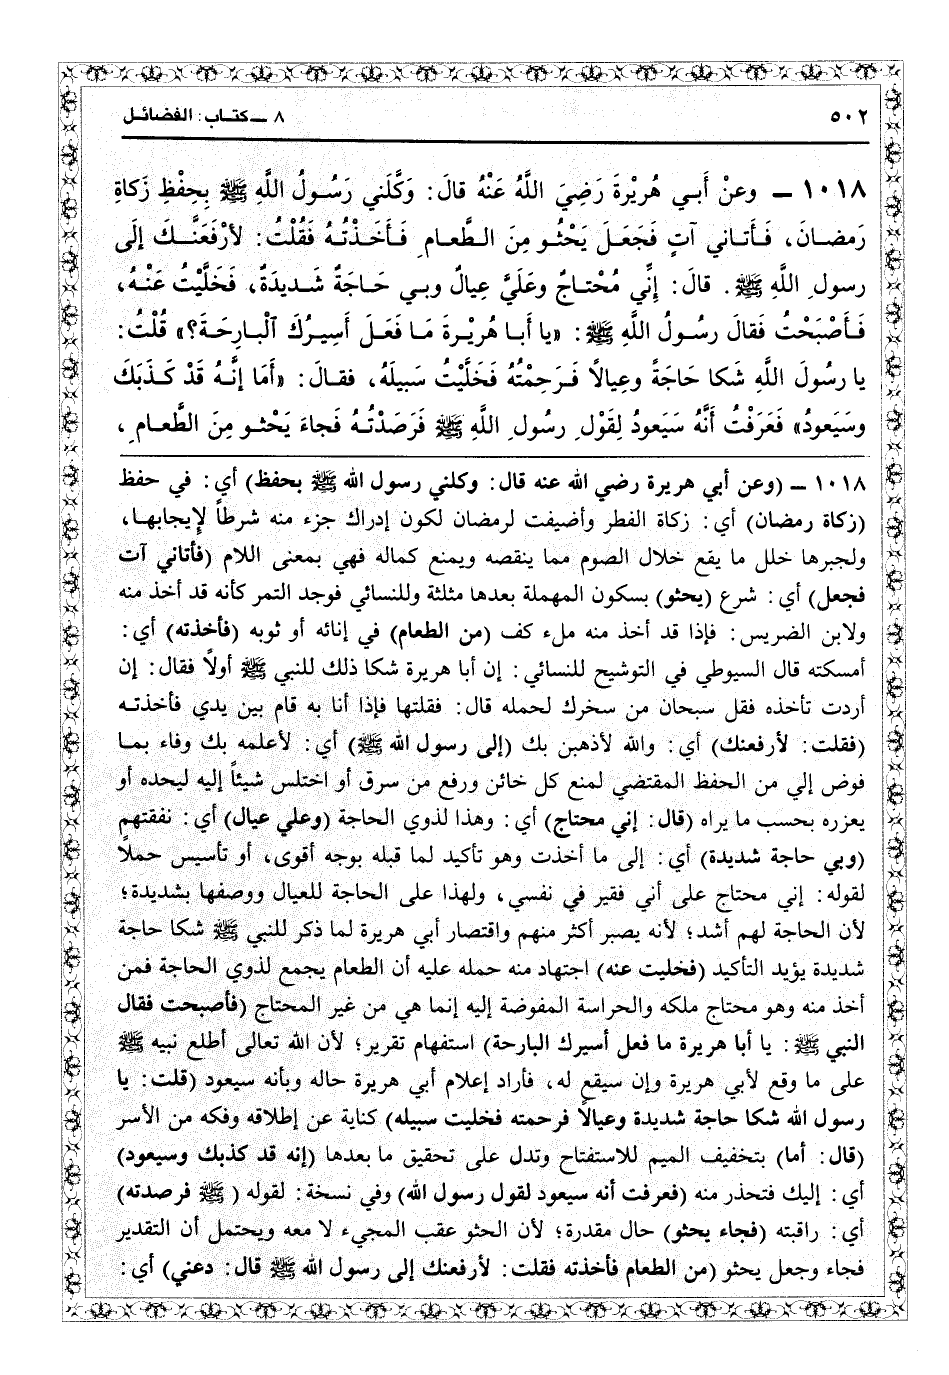 ٥٠٢ ٨ ـ كتاب: الفضائل
١٠١٨ ـ وعنْ أَبي هُريْرةَ رَضِيَ اللَّهُ عَنْهُ قالَ: وَكَّلَني رَسُولُ اللَّهِ ﷺ بِحِفْظِ زَكاةِ
رَمضانَ، فَأَتاني آتٍ فَجعَلَ يَحْثُو مِنَ الطَّعامِ فَأَخَذْتُهُ فَقُلْتُ: لأَرْفَعَنَّكَ إِلَى
رسولِ اللَّهِ ﷺ. قالَ: إِنِّي مُحْتاجٌ وعَلَيَّ عِيالٌ وبي حَاجَةٌ شَديدَةٌ، فَخَلَّيْتُ عَنْهُ،
فَأَصْبَحْتُ فَقالَ رسُولُ اللَّهِ ﷺ: «يا أَبا هُريْرةَ مَا فَعَلَ أَسِيرُكَ ٱلْبارِحَةَ؟» قُلْتُ:
يا رسُولَ اللَّهِ شَكا حَاجَةً وعِيالاً فَرَحِمْتُهُ فَخَلَّيْتُ سَبيلَهُ، فقالَ: «أَمَا إِنَّهُ قَدْ كَذَبَكَ
وسَيَعودُ» فَعَرَفْتُ أَنَّهُ سَيَعودُ لِقَوْلِ رسُولِ اللَّهِ ﷺ فَرَصَدْتُهُ فَجاءَ يَحْثُو مِنَ الطَّعامِ،
١٠١٨ ـ (وعن أبي هريرة رضي الله عنه قال: وكلني رسول الله ﷺ بحفظ) أي: في حفظ
(زكاة رمضان) أي: زكاة الفطر وأضيفت لرمضان لكون إدراك جزء منه شرطاً لإيجابها،
ولجبرها خلل ما يقع خلال الصوم مما ينقصه ويمنع كماله فهي بمعنى اللام (فأتاني آت
فجعل) أي: شرع (يحثو) بسكون المهملة بعدها مثلثة وللنسائي فوجد التمر كأنه قد أخذ منه
ولابن الضريس: فإذا قد أخذ منه ملء كف (من الطعام) في إنائه أو ثوبه (فأخذته) أي:
أمسكته قال السيوطي في التوشيح للنسائي: إن أبا هريرة شكا ذلك للنبي ﷺ أولاً فقال: إن
أردت تأخذه فقل سبحان من سخرك لحمله قال: فقلتها فإذا أنا به قام بين يدي فأخذته
(فقلت: لأرفعنك) أي: والله لأذهبن بك (إلى رسول الله ﷺ) أي: لأعلمه بك وفاء بما
فوض إلي من الحفظ المقتضي لمنع كل خائن ورفع من سرق أو اختلس شيئاً إليه ليحده أو
يعزره بحسب ما يراه (قال: إني محتاج) أي: وهذا لذوي الحاجة (وعلي عيال) أي: نفقتهم
(وبي حاجة شديدة) أي: إلى ما أخذت وهو تأكيد لما قبله بوجه أقوى، أو تأسيس حملاً
لقوله: إني محتاج على أني فقير في نفسي، ولهذا على الحاجة للعيال ووصفها بشديدة؛
لأن الحاجة لهم أشد؛ لأنه يصبر أكثر منهم واقتصار أبي هريرة لما ذكر للنبي ﷺ شكا حاجة
شديدة يؤيد التأكيد (فخليت عنه) اجتهاد منه حمله عليه أن الطعام يجمع لذوي الحاجة فمن
أخذ منه وهو محتاج ملكه والحراسة المفوضة إليه إنما هي من غير المحتاج (فأصبحت فقال
النبي ﷺ: يا أبا هريرة ما فعل أسيرك البارحة) استفهام تقرير؛ لأن الله تعالى أطلع نبيه ﷺ
على ما وقع لأبي هريرة وإن سيقع له، فأراد إعلام أبي هريرة حاله وبأنه سيعود (قلت: يا
رسول الله شكا حاجة شديدة وعيالاً فرحمته فخليت سبيله) كناية عن إطلاقه وفكه من الأسر
(قال: أما) بتخفيف الميم للاستفتاح وتدل على تحقيق ما بعدها (إنه قد كذبك وسيعود)
أي: إليك فتحذر منه (فعرفت أنه سيعود لقول رسول الله) وفي نسخة: لقوله (ﷺ فرصدته)
أي: راقبته (فجاء يحثو) حال مقدرة؛ لأن الحثو عقب المجيء لا معه ويحتمل أن التقدير
فجاء وجعل يحثو (من الطعام فأخذته فقلت: لأرفعنك إلى رسول الله ﷺ قال: دعني) أي: